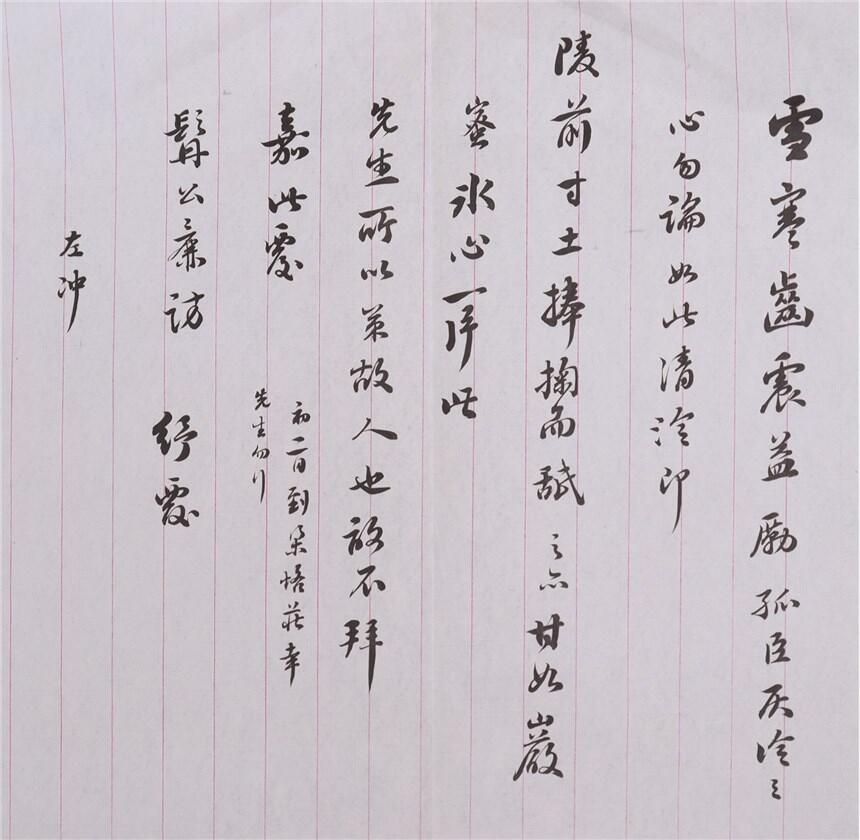 雪寒齒震益勵孤臣灰冷之
心勿論如此清泠即
陵前寸土捧掬而舐之亦甘如巖
蜜冰心一片此
先生所以策故人也敢不拜
嘉此覆
初二日到梁格莊幸
先生勿行
髯公廉訪 紓覆
左冲